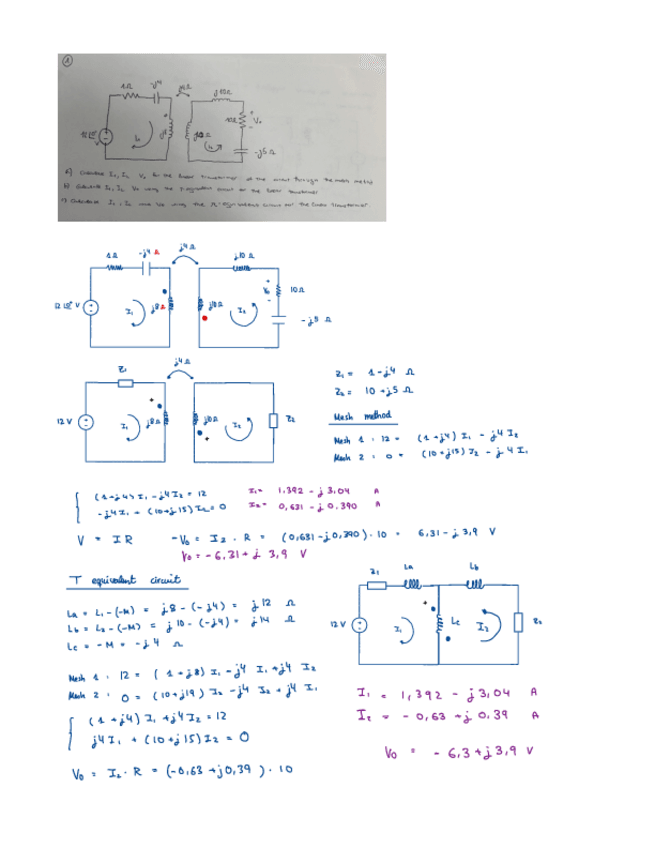 1
1Ω j4 j4Ω j10Ω
12 V I₁ j8 j10Ω I₂ 10Ω + V₀ - -j5 Ω
a) Calculate I₁, I₂ V₀ for the linear transformer of the circuit through the mesh method
b) Calculate I₁, I₂ V₀ using the T-equivalent circuit of the linear transformer
c) Calculate I₁, I₂ and V₀ using the π-equivalent circuit for the linear transformer.
1Ω -j4 Ω j4 Ω j10 Ω
V I₁ j8 Ω j10 Ω I₂ + V₀ - 10Ω -j5 Ω
Z₁ j4 Ω
12 V I₁ j8Ω j10Ω I₂ Z₂
Z₁ = 1-j4 Ω
Z₂ = 10+j5 Ω
Mesh method
Mesh 1: 12 = (1+j4) I₁ - j4 I₂
Mesh 2: 0 = (10+j15) I₂ - j4 I₁
(1+j4) I₁ - j4 I₂ = 12
-j4 I₁ + (10+j15) I₂ = 0
I₁ = 1,392 - j 3,04 A
I₂ = 0,631 - j 0,390 A
V = I R -V₀ = I₂ · R = (0,631 - j0,390) · 10 = 6,31 - j 3,9 V
V₀ = -6,31 + j 3,9 V
T equivalent circuit
La = L₁-(-M) = j8 - (-j4) = j12 Ω
Lb = L₂-(-M) = j10 - (-j4) = j14 Ω
Lc = -M = -j4 Ω
Z₁ La Lb
12 V I₁ Lc I₂ Z₂
Mesh 1: 12 = (1+j8) I₁ - j4 I₁ + j4 I₂
Mesh 2: 0 = (10+j19) I₂ - j4 I₂ + j4 I₁
(1+j4) I₁ + j4 I₂ = 12
j4 I₁ + (10+j15) I₂ = 0
V₀ = I₂ · R = (-0,63 + j0,39) · 10
I₁ = 1,392 - j3,04 A
I₂ = -0,63 + j 0,39 A
V₀ = -6,3+j3,9 V